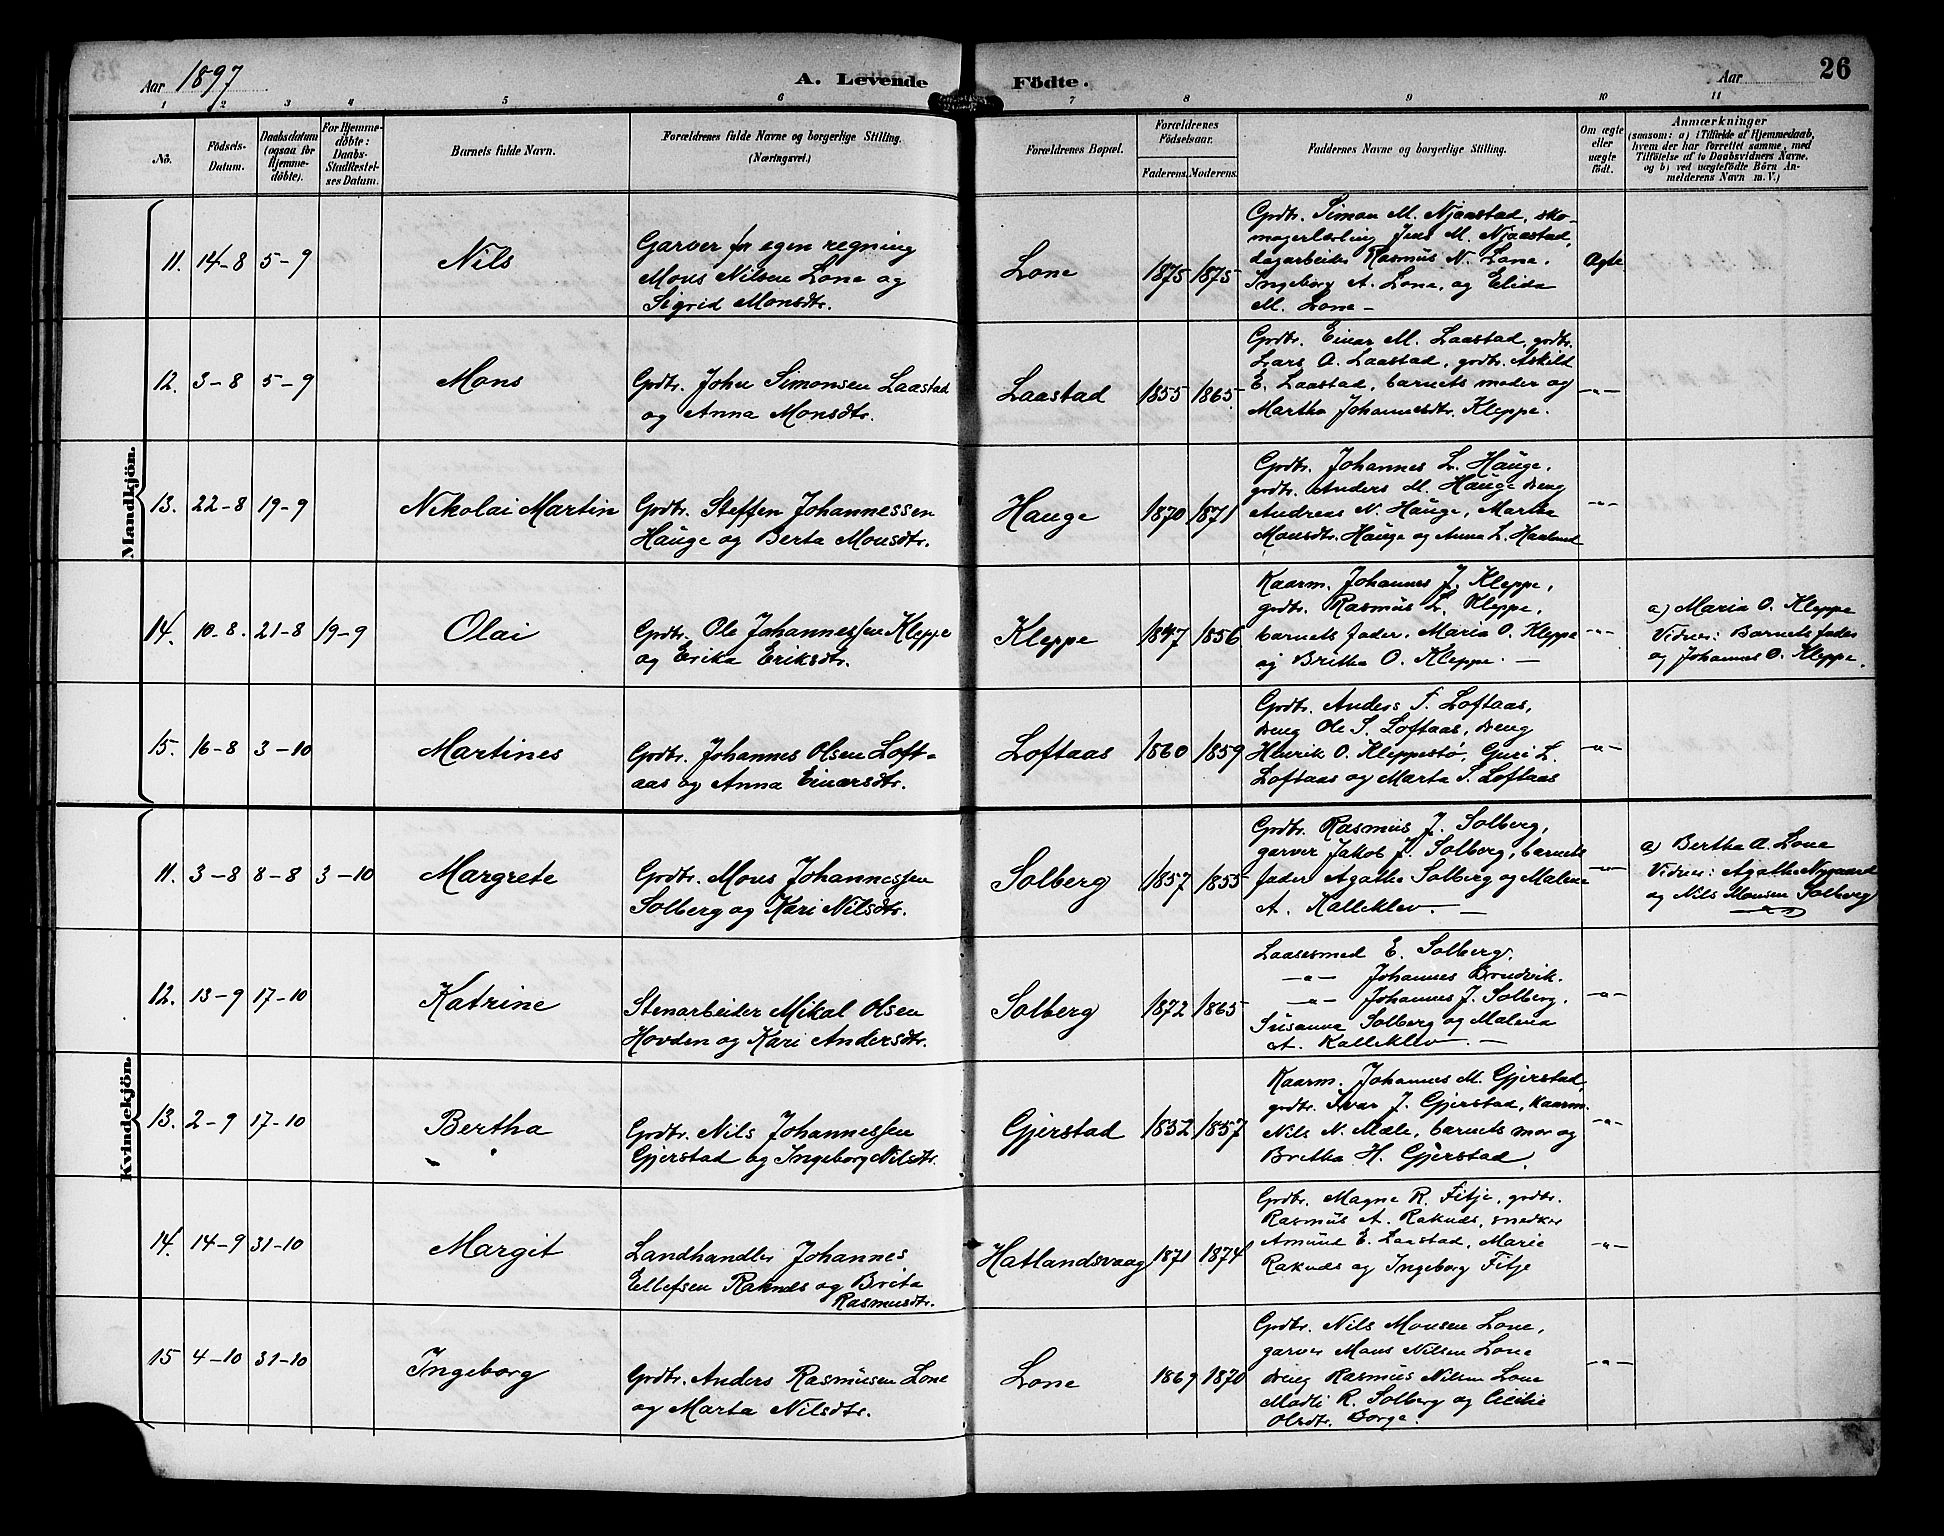 Aar 1897
A. Levende Födte.
Aar
26
1 2 3 4 5 6 7 8 9 10 11
Nô.
Födsels-
Datum.
Daabsdatum
(ogsaa for
Hjemme-
döbte).
For Hjemme-
döbte:
Daabs-
Stadfæstel-
ses Datum.
Barnets fulde Navn.
Forældrenes fulde Navne og borgerlige Stilling.
(Næringsvei.)
Forældrenes Bopæl.
Forældrenes
Födselsaar.
Faderens. Moderens.
Faddernes Navne og borgerlige Stilling.
Om ægte
eller
uægte
født.
Anmærkninger
(saasom: a) i Tilfælde af Hjemmedaab,
hvem der har forrettet samme, med
Tilföielse af to Daabsvidners Navne,
og b) ved uægtefödte Börn An-
melderens Navn m. V.)
Mandkjön.
11. 14-8 5-9
Nils
Garver for egen regning
Mons Nilsen Lone og
Sigrid Monsdtr.
Lone
1875 1875
Grdbr. Simon M. Njaastad, sko-
magerlærling Jens M. Njaastad,
dagarbeider Rasmus N. Lone,
Ingeborg A. Lone, og Elida
M. Lone -
Ægte
12. 3-8 5-9
Mons
Grdbr. John Simonsen Laastad
og Anna Monsdtr.
Laastad
1855 1865
Grdbr. Einar M. Laastad, grdbr.
Lars O. Laastad, grdbr. Askild
E. Laastad, barnets moder og
Martha Johannesdtr. Kleppe.
-"-
13. 22-8 19-9
Nikolai Martin
Grdbr. Steffen Johannessen
Hauge og Berta Monsdtr.
Hauge
1870 1871
Grdbr. Johannes L. Hauge,
grdbr. Anders M. Hauge dreng
Andreas N. Hauge, Marta
Monsdtr. Hauge og Anna L. Haaland
-"-
14. 10-8. 21-8 19-9
Olai
Grdbr. Ole Johannessen Kleppe
og Erika Eriksdtr.
Kleppe
1847 1856
Kaarm. Johannes J. Kleppe,
grdbr. Rasmus L. Kleppe,
barnets fader, Maria O. Kleppe
og Britha O. Kleppe. -
-"-
a) Maria O. Kleppe
Vidner: Barnets fader
og Johannes O. Kleppe.
15. 16-8 3-10
Martines
Grdbr. Johannes Olsen Loft-
aas og Anna Einarsdtr.
Loftaas
1860 1859
Grdbr. Anders S. Loftaas,
dreng Ole S. Loftaas, dreng
Henrik O. Kleppestø, Guri L.
Loftaas og Marta S. Loftaas
-"-
Kvindekjön.
11. 3-8 8-8 3-10
Margrete
Grdbr. Mons Johannessen
Solberg og Kari Nilsdtr.
Solberg
1857 1855
Grdbr. Rasmus J. Solberg,
garver Jakob J. Solberg, barnets
fader Agathe Solberg og Malena
A. Kalleklev. -
-"-
a) Bertha A. Lone
Vidner: Agathe Nygaard
og Nils Monsen Solberg
12. 13-9 17-10
Katrine
Stenarbeider Mikal Olsen
Hovden og Kari Andersdtr.
Solberg
1872 1865
Laasesmed E. Solberg.
-"- Johannes Brudvik.
-"- Johannes J. Solberg.
Susanna Solberg og Malena
A. Kalleklev. -
-"-
13. 2-9 17-10
Bertha
Grdbr. Nils Johannessen
Gjerstad og Ingeborg Nilsdtr.
Gjerstad
1852 1857
Kaarm. Johannes M. Gjerstad,
grdbr. Ivar J. Gjerstad, kaarm.
Nils N. Mæle, barnets mor og
Britha H. Gjerstad.
-"-
14. 14-9 31-10
Margit
Landhandler Johannes
Ellefsen Raknes og Brita
Rasmusdtr.
Hatlandsvaag
1871 1874
Grdbr. Magne R. Fitje, grdbr.
Rasmus A. Raknes, snedker
Amund E. Laastad, Marie
Raknes og Ingeborg Fitje
-"-
15 4-10 31-10
Ingeborg
Grdbr. Anders Rasmusen Lone
og Marta Nilsdtr.
Lone
1869 1870
Grdbr. Nils Monsen Lone,
garver Mons Nilsen Lone
dreng Rasmus Nilsen Lone
Madli R. Solberg og Cicilie
Olsdtr. Borge.
-"-